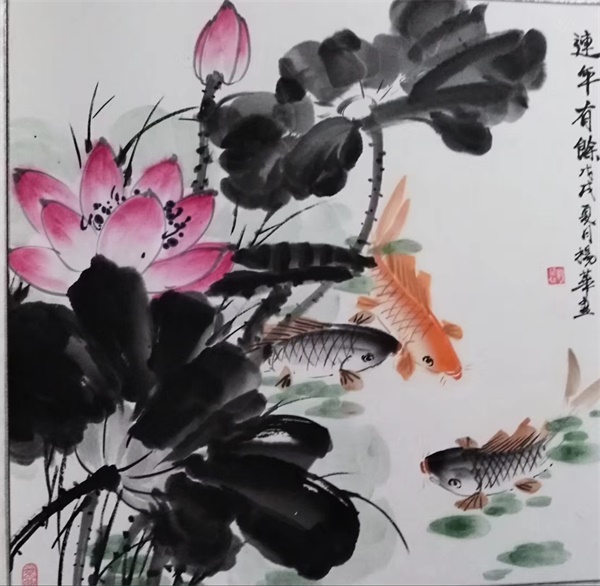 連年有餘戊戌夏月楊華畫